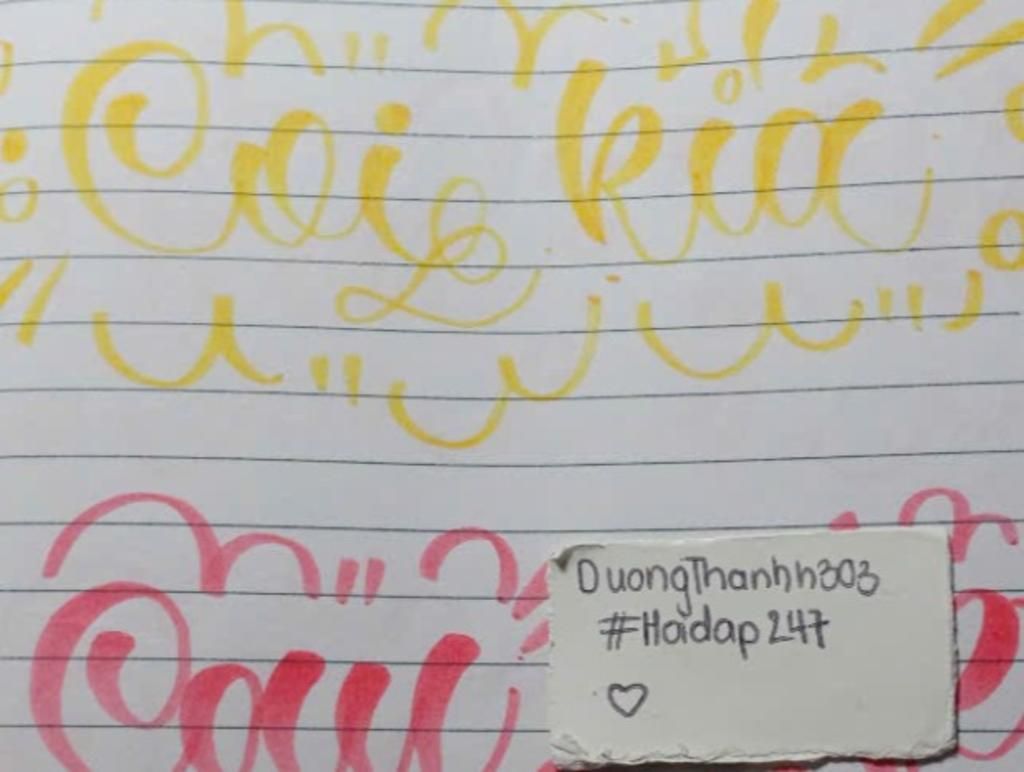 Coi kia
DuongThanhh303
#Hoidap247